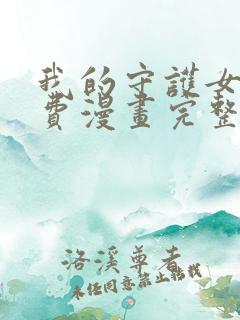 我的守護女
費漫畫完整
洛溪尊者
未经同意禁止转载